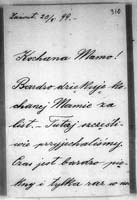 20/4 99.
310
Kochana Mamo!
Bardzo dziękuję ko-
chanej Mamie za
list. – Tutaj szczęśli-
wie przyjechaliśmy.
Czas jest bardzo pię-
kny i tylko raz w na